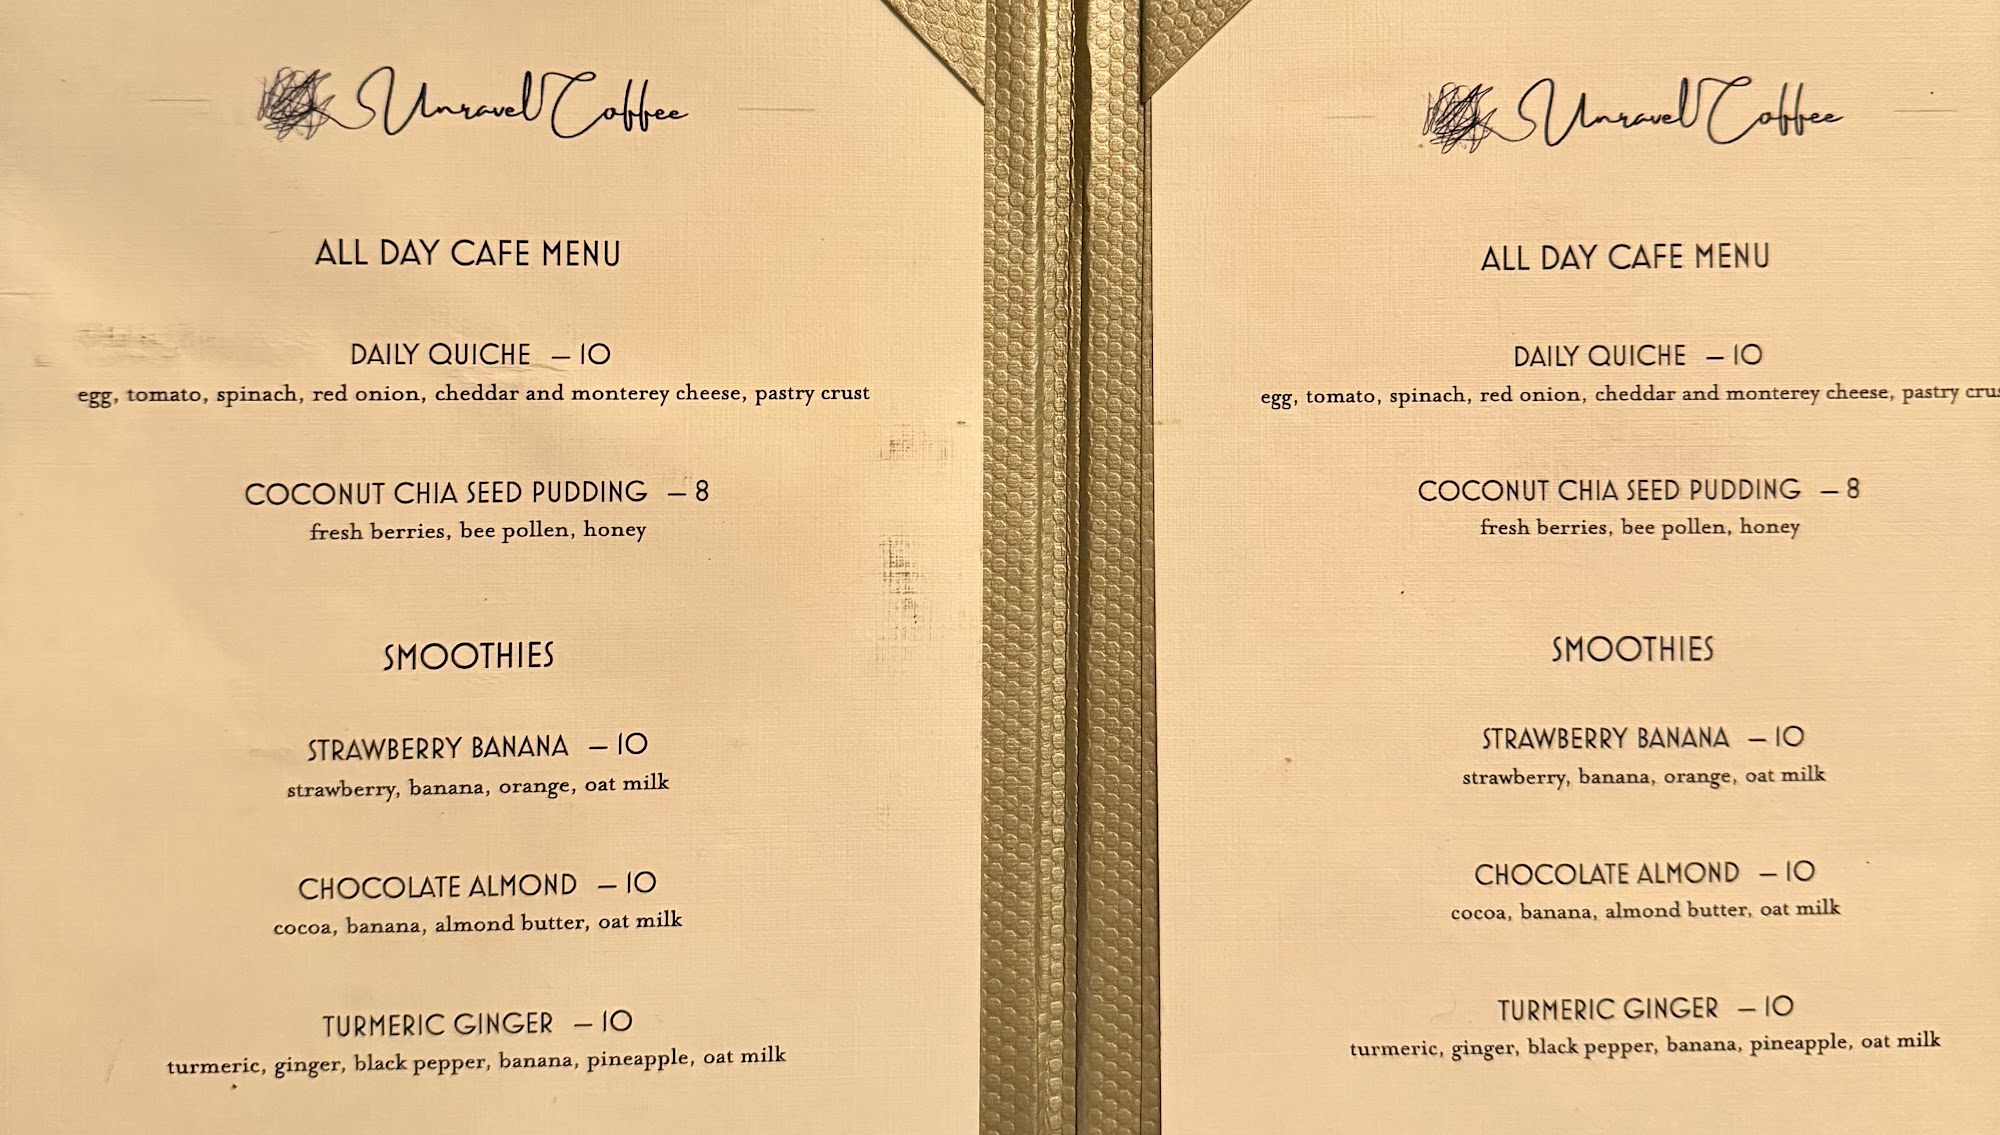 Unravel Coffee
ALL DAY CAFE MENU
DAILY QUICHE – 10
egg, tomato, spinach, red onion, cheddar and monterey cheese, pastry crust
COCONUT CHIA SEED PUDDING – 8
fresh berries, bee pollen, honey
SMOOTHIES
STRAWBERRY BANANA – 10
strawberry, banana, orange, oat milk
CHOCOLATE ALMOND – 10
cocoa, banana, almond butter, oat milk
TURMERIC GINGER – 10
turmeric, ginger, black pepper, banana, pineapple, oat milk
Unravel Coffee
ALL DAY CAFE MENU
DAILY QUICHE – 10
egg, tomato, spinach, red onion, cheddar and monterey cheese, pastry crus
COCONUT CHIA SEED PUDDING – 8
fresh berries, bee pollen, honey
SMOOTHIES
STRAWBERRY BANANA – 10
strawberry, banana, orange, oat milk
CHOCOLATE ALMOND – 10
cocoa, banana, almond butter, oat milk
TURMERIC GINGER – 10
turmeric, ginger, black pepper, banana, pineapple, oat milk